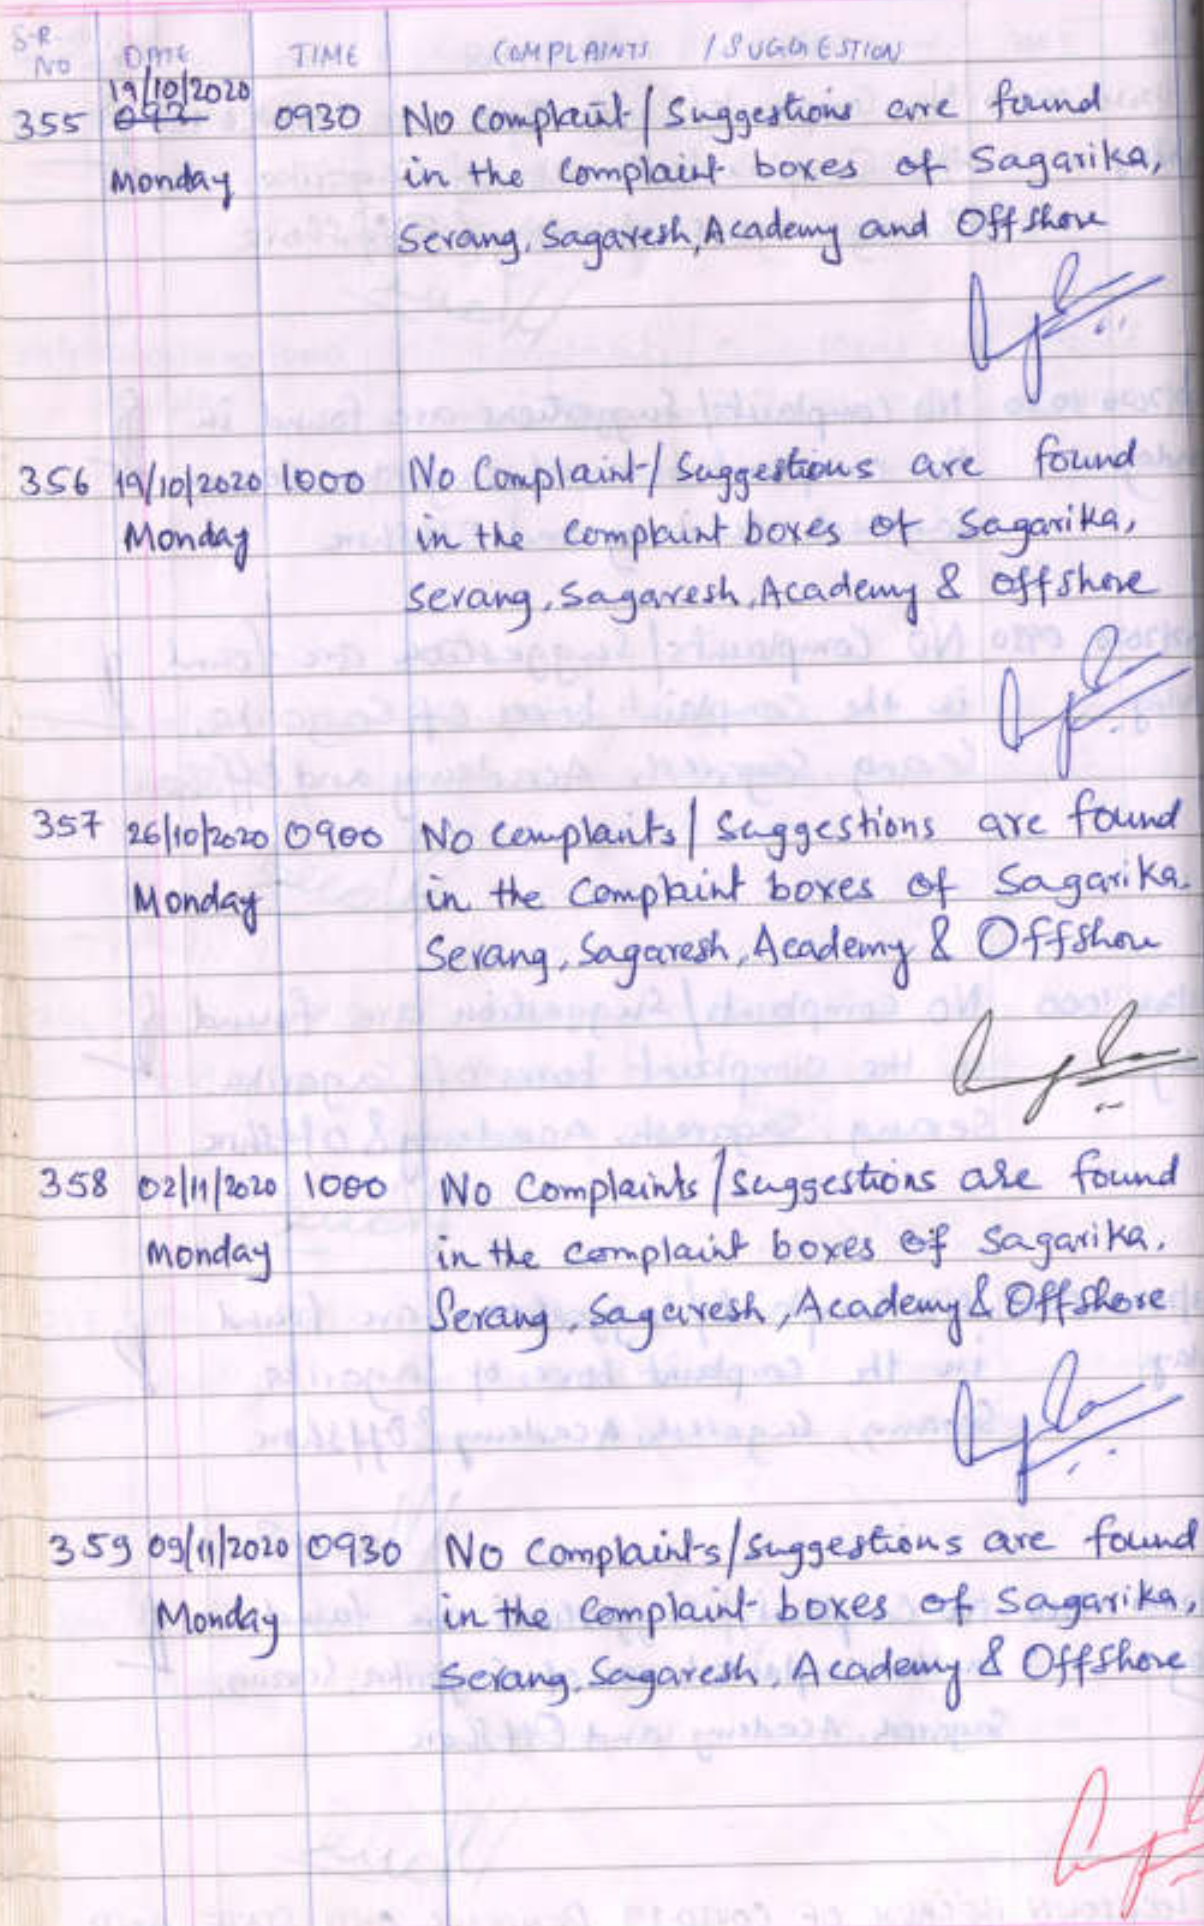 S.R. NO DATE TIME COMPLAINTS / SUGGESTION
19/10/2020
355 0930 No complaint/Suggestions are found
Monday in the complaint boxes of Sagarika,
Serang, Sagaresh, Academy and Offshore
356 19/10/2020 1000 No Complaint/Suggestions are found
Monday in the complaint boxes of Sagarika,
Serang, Sagaresh, Academy & offshore
357 26/10/2020 0900 No complaints/Suggestions are found
Monday in the Complaint boxes of Sagarika.
Serang, Sagaresh, Academy & Offshore
358 02/11/2020 1000 No Complaints/Suggestions are found
Monday in the complaint boxes of Sagarika.
Serang, Sagaresh, Academy & Offshore
359 09/11/2020 0930 No Complaints/Suggestions are found
Monday in the Complaint boxes of Sagarika,
Serang, Sagaresh, Academy & Offshore